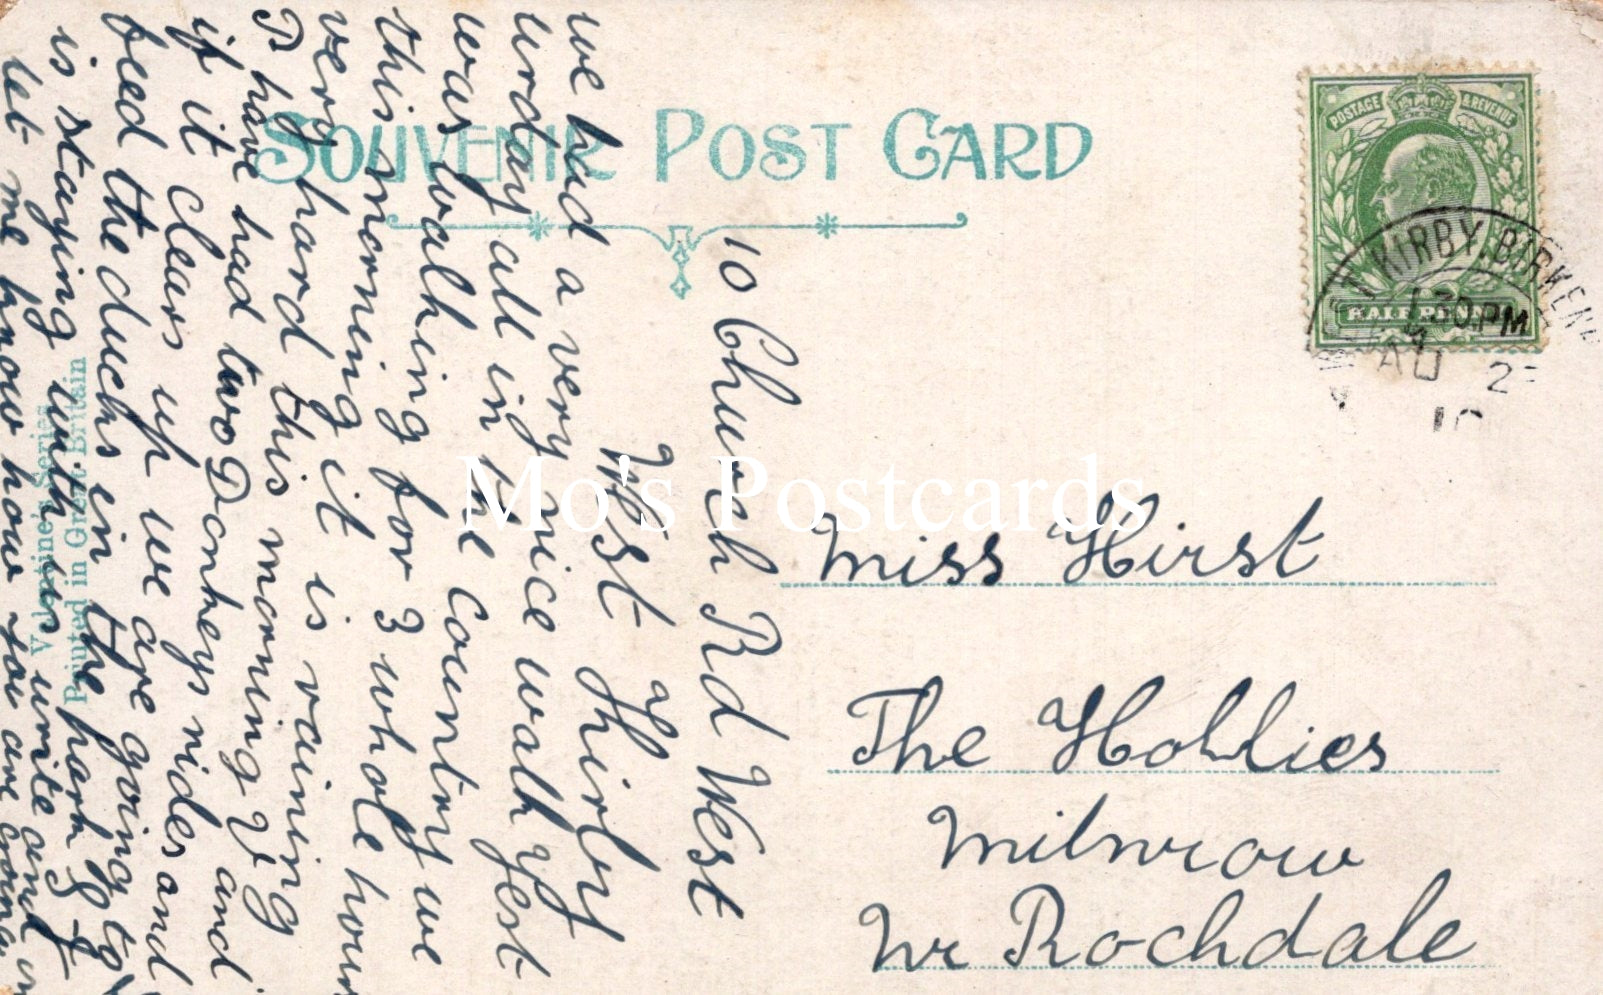 SOUVENIR POST CARD
POSTAGE & REVENUE
HALFPENNY
KIRBY. BIRKENH
1.30 PM
AU 2
10
Miss Hirst
The Hollies
Milnrow
Nr Rochdale
10 Church Rd West
West Kirby
we had a very nice walk yest
urday all in the country we
was walking for 3 whole hours
this morning it is raining
very hard this morning V and
P have had two Donkeys rides and
if it clears up we are going to
feed the ducks in the park
is staying with us write and
let me know how you are
Valentines Series
Printed in Great Britain
Mo's Postcards